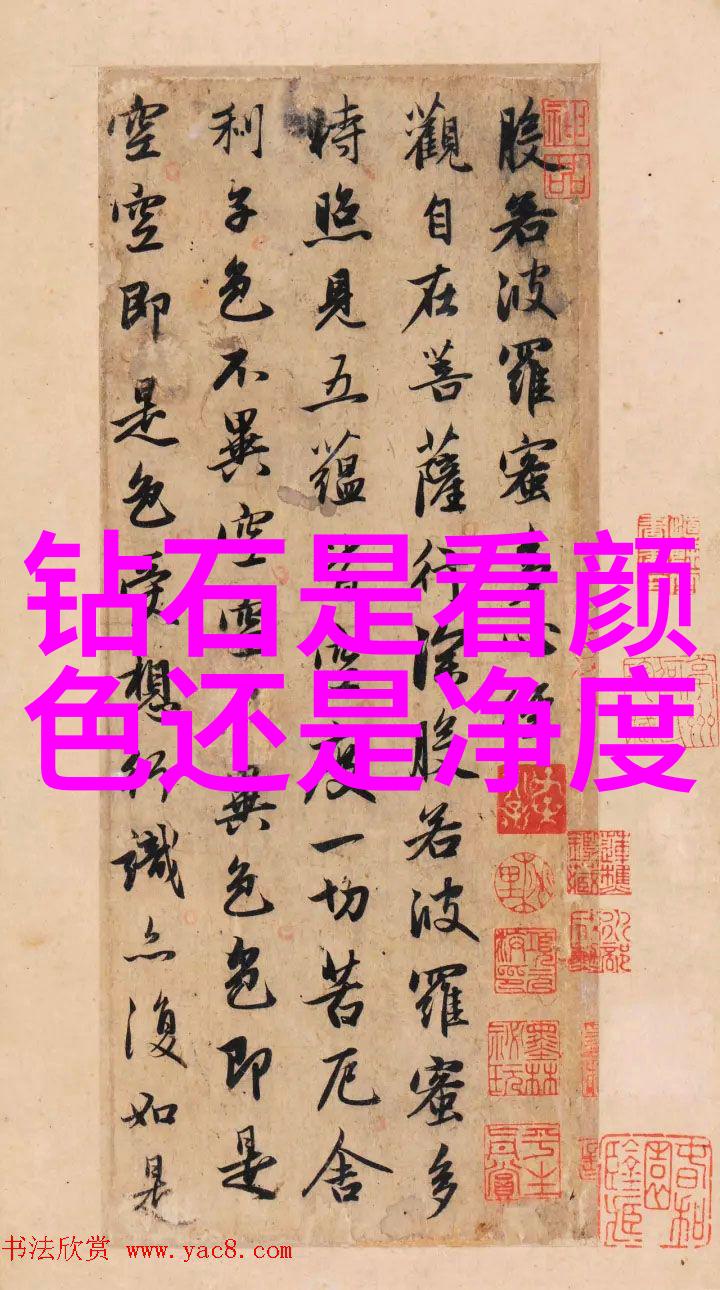 般若波羅蜜多心經
觀自在菩薩行深般若波羅蜜多
時照見五蘊皆空度一切苦厄舍
利子色不異空空不異色色即是
空空即是色受想行識亦復如是
钻石是看颜
色还是净度
神品
墨林秘玩
书法欣赏 www.yac8.com